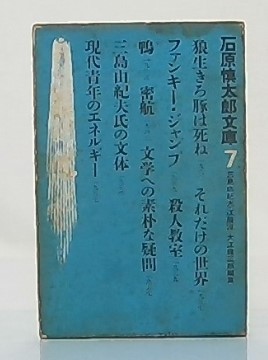 石原慎太郎文庫 7
狼生きろ豚は死ね
それだけの世界
ファンキー・ジャンプ
殺人教室
鴨
密航
文学への素朴な疑問
三島由紀夫氏の文体
現代青年のエネルギー